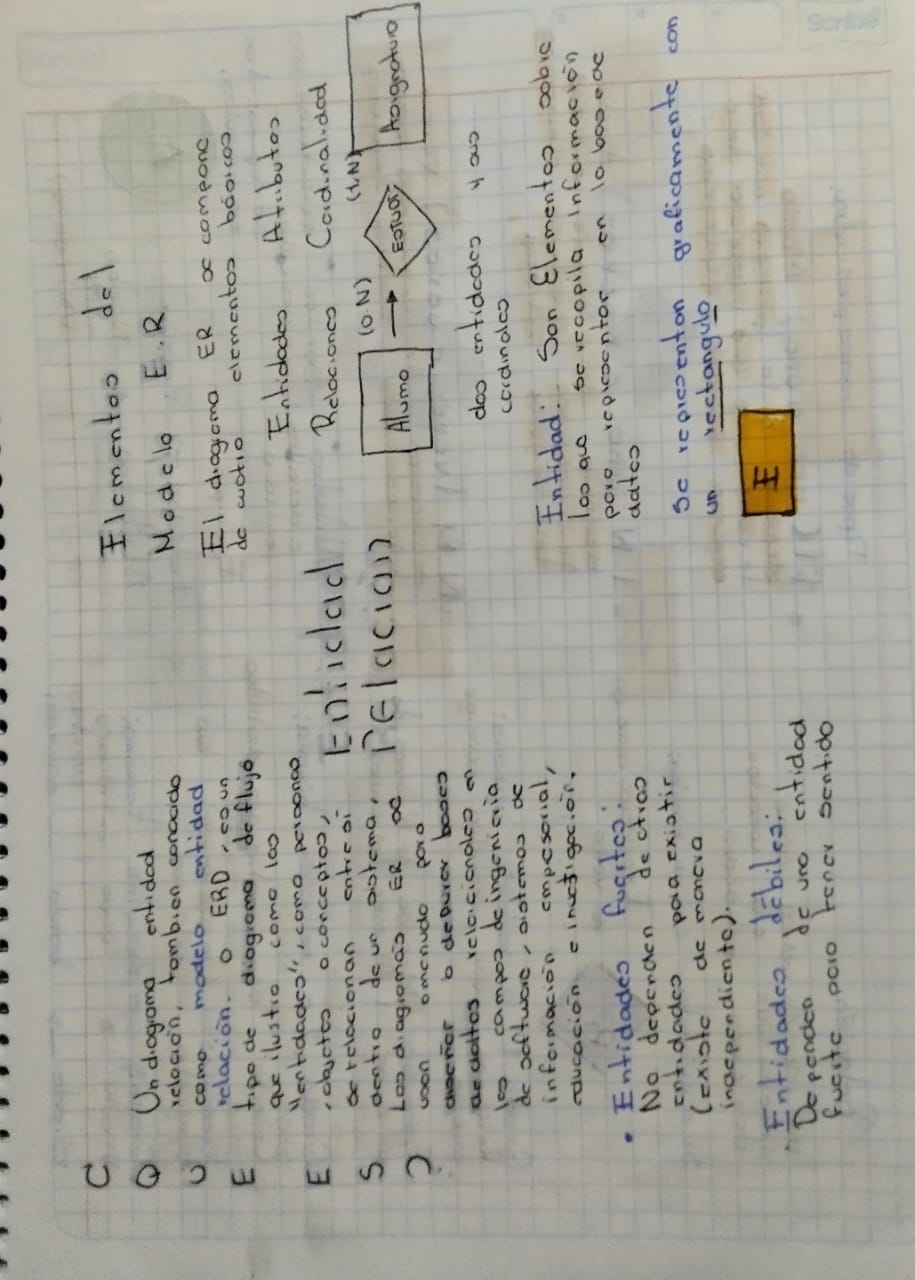 Scribe
C
Q
U
E
E
S
?
Un diagrama entidad
relación, tambien conocido
como modelo entidad
relación. o ERD, es un
tipo de diagrama de flujo
que ilustra como las
"entidades", como personas
, objetos o conceptos,
se relacionan entre si
dentro de un sistema,
Los diagramas ER se
usan amenudo para
diseñar o depurar bases
de daltos relcicionales en
los campos de ingenieria
de software, sistemas de
información empresarial,
educación e investigación.
Entidad
rElación
• Entidades fuertes:
No dependen de otras
entidades para existir
(existe de manera
independiente).
. Entidades débiles:
Dependen de una entidad
fuerte para tener sentido
Elementos del
Modelo E.R
El diagrama ER se compone
de cuatro elementos básicos
• Entidades • Atributos
• Relaciones Cardinalidad
Alumo (0 N) Estudi (1,N) Asignatura
dos entidades y sus
cardinales
Entidad: Son Elementos sobre
los que se recopila información
para representar en la base de
datos
Se representan graficamente con
un rectangulo
E